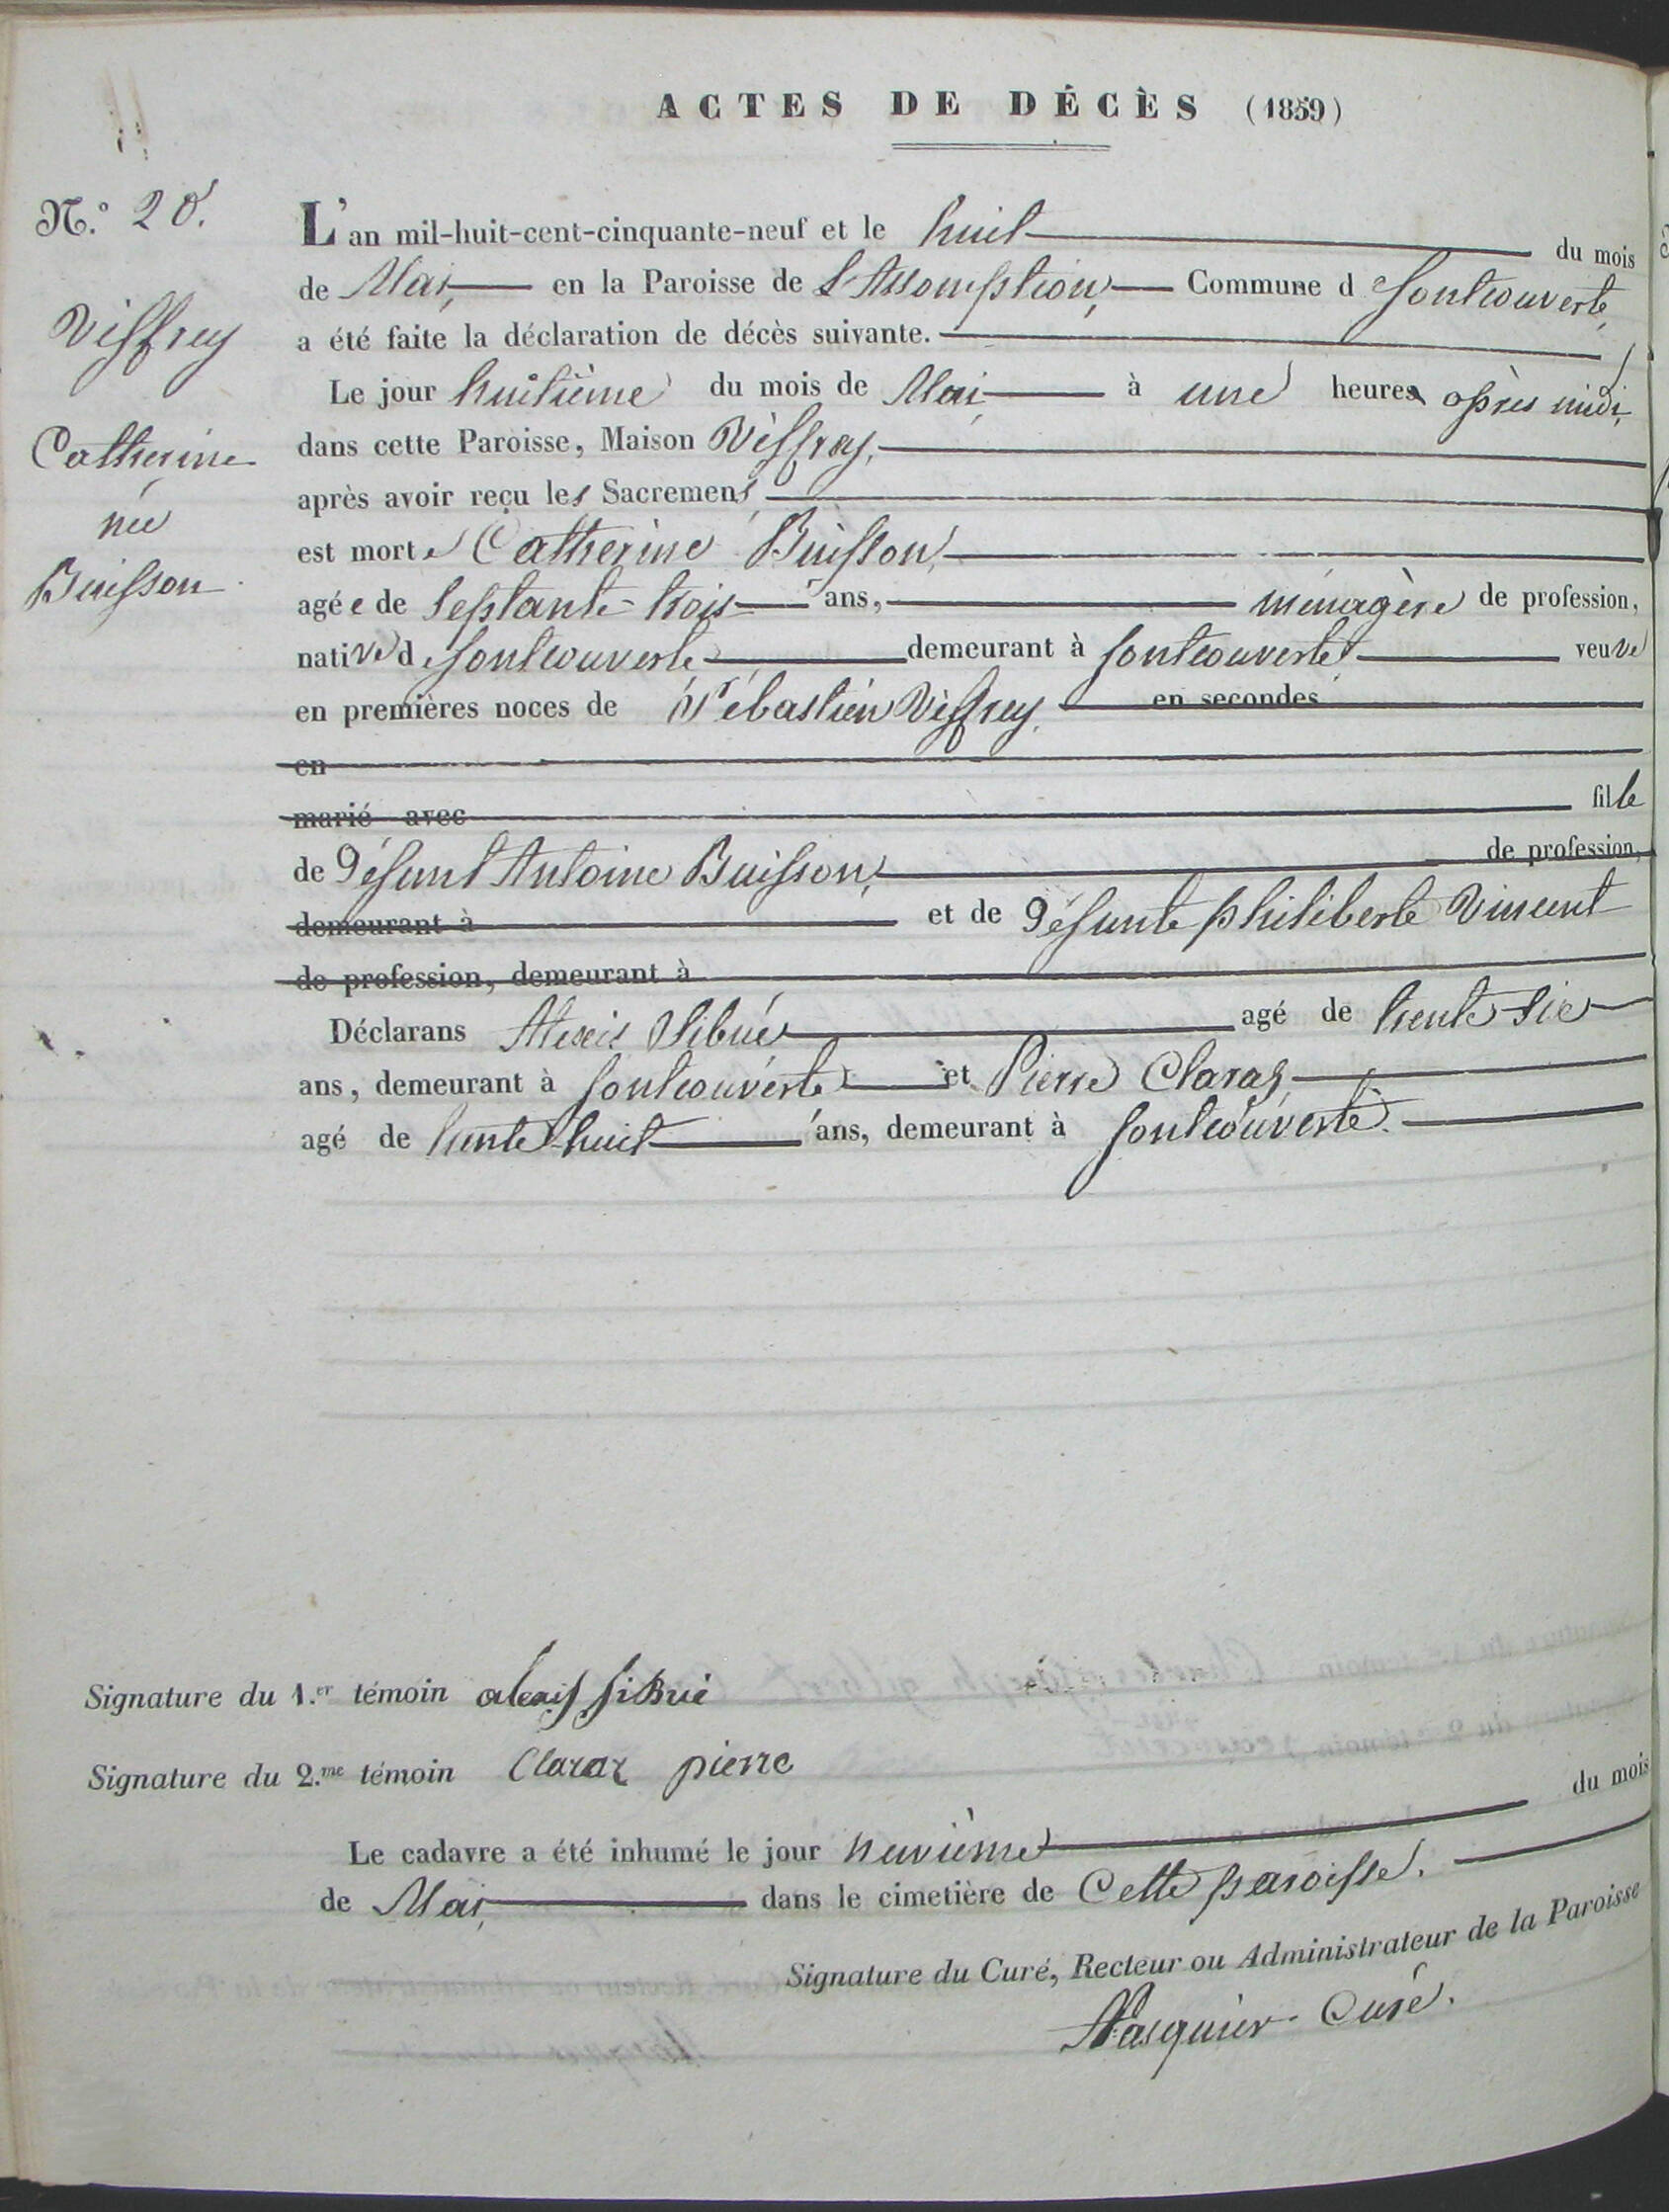 ACTES DE DÉCÈS (1859)
N.º 20.
Viffrey
Catherine
née
Buisson
L'an mil-huit-cent-cinquante-neuf et le huit du mois
de Mai, en la Paroisse de L'Assomption, Commune de fontcouverte,
a été faite la déclaration de décès suivante.
Le jour huitième du mois de Mai à une heures après midi,
dans cette Paroisse, Maison Viffrey,
après avoir reçu les Sacremens,
est morte Catherine Buisson,
agée de Septante-trois ans, ménagère de profession,
native de fontcouverte demeurant à fontcouverte veuve
en premières noces de Sébastien Viffrey, en secondes
en
marié avec fille
de Défunt Antoine Buisson, de profession,
demeurant à et de Défunte philiberte Vincent
de profession, demeurant à
Déclarans Alexis Sibué agé de trente-six
ans, demeurant à fontcouverte et Pierre Claraz,
agé de trente-huit ans, demeurant à fontcouverte.
Signature du 1.er témoin alexis siBué
Signature du 2.me témoin Claraz pierre
Le cadavre a été inhumé le jour neuvième du mois
de Mai, dans le cimetière de Cette paroisse.
Signature du Curé, Recteur ou Administrateur de la Paroisse
Curé.